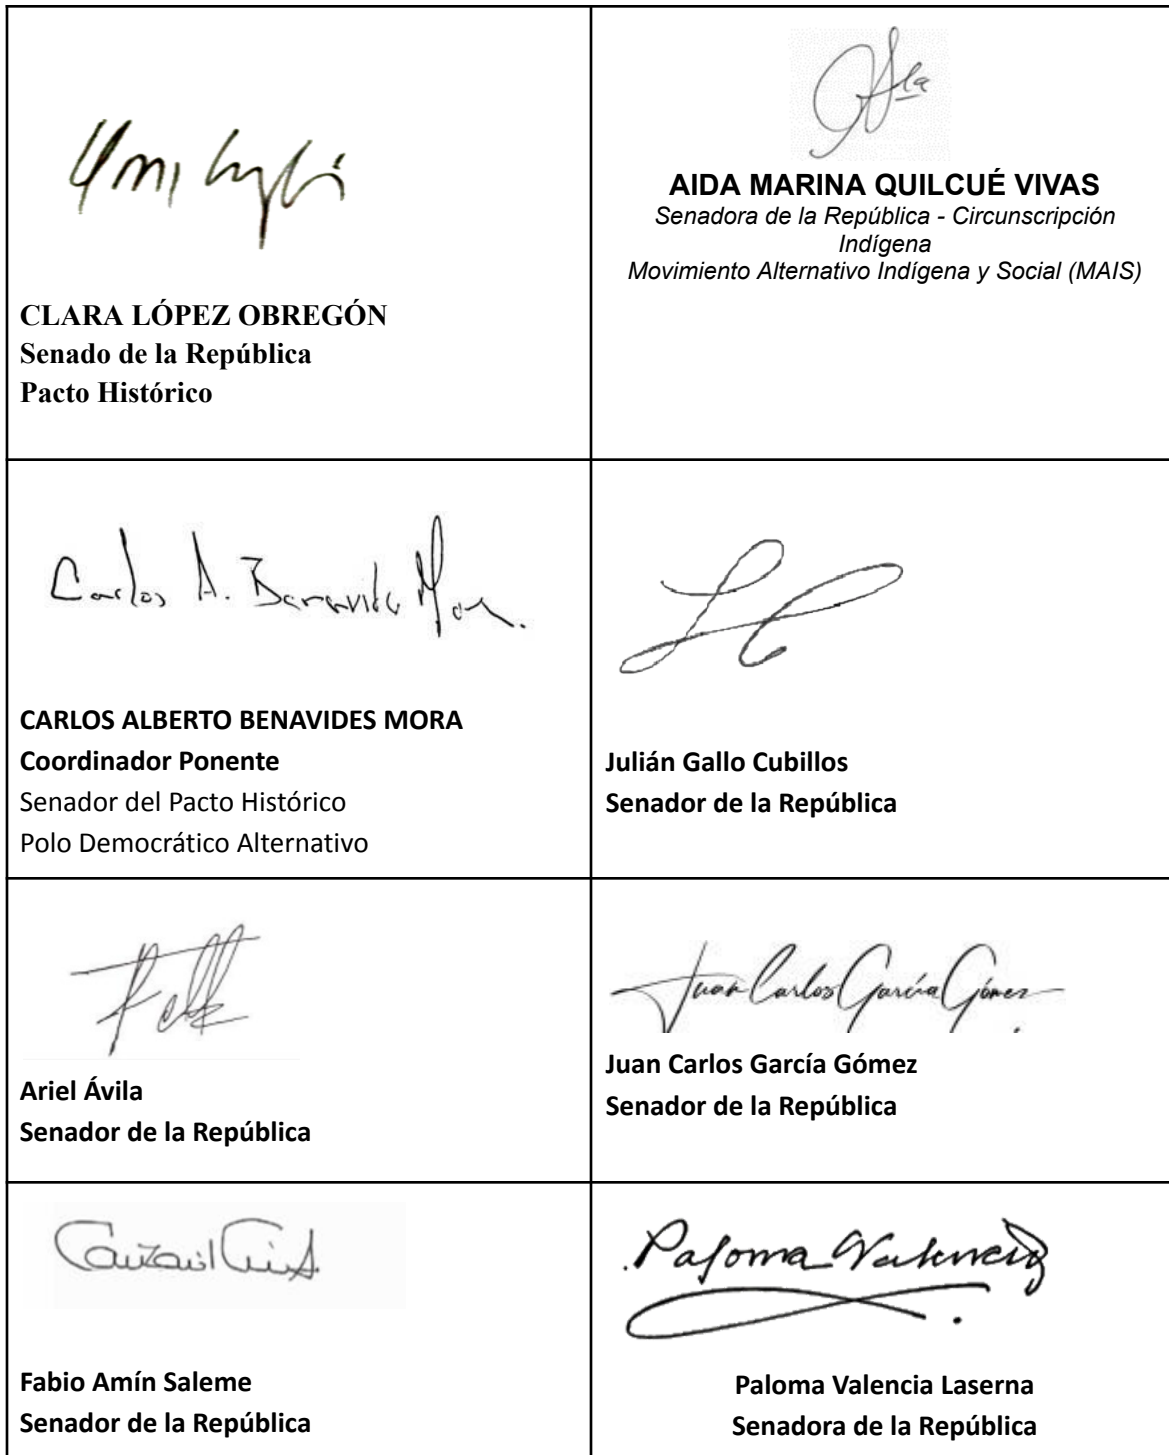 CLARA LÓPEZ OBREGÓN
Senado de la República
Pacto Histórico
AIDA MARINA QUILCUÉ VIVAS
Senadora de la República - Circunscripción
Indígena
Movimiento Alternativo Indígena y Social (MAIS)
Carlos A. Benavides Mora.
CARLOS ALBERTO BENAVIDES MORA
Coordinador Ponente
Senador del Pacto Histórico
Polo Democrático Alternativo
Julián Gallo Cubillos
Senador de la República
Ariel Ávila
Senador de la República
Juan Carlos García Gómez
Juan Carlos García Gómez
Senador de la República
Fabio Amín Saleme
Senador de la República
Paloma Valencia
Paloma Valencia Laserna
Senadora de la República